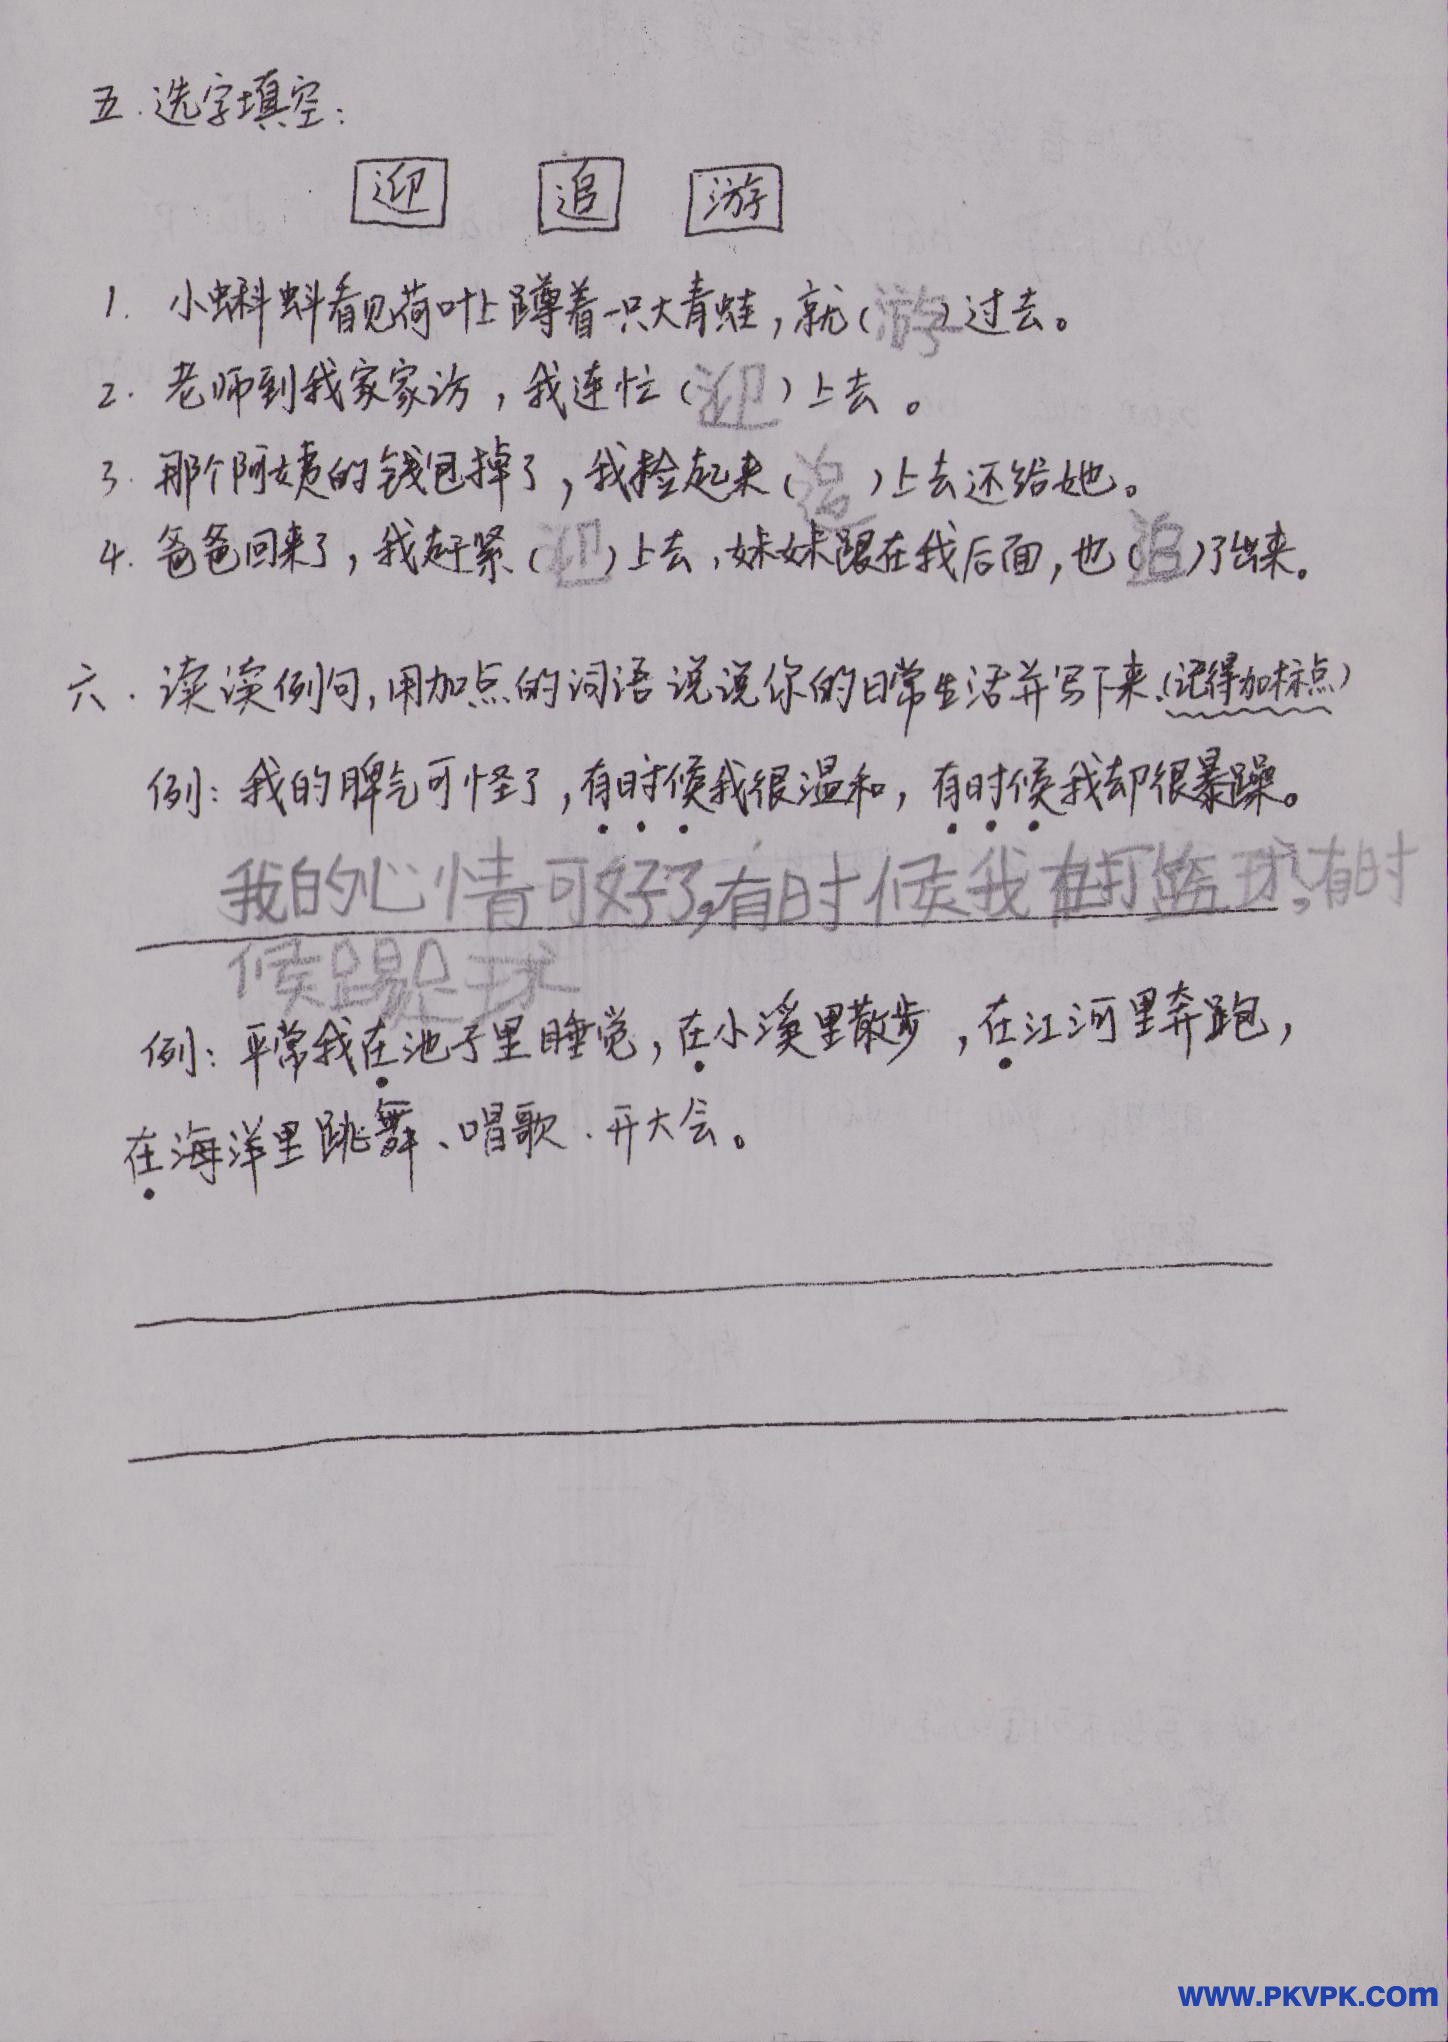 五.选字填空:
迎 追 游
1. 小蝌蚪看见荷叶上蹲着一只大青蛙,就(游)过去。
2. 老师到我家家访,我连忙(迎)上去。
3. 那个阿姨的钱包掉了,我捡起来(追)上去还给她。
4. 爸爸回来了,我赶紧(迎)上去,妹妹跟在我后面,也(追)了出来。
六.读读例句,用加点的词语说说你的日常生活并写下来.(记得加标点)
例:我的脾气可怪了,有时候我很温和,有时候我却很暴躁。
我的心情可好了,有时候我在打篮球,有时
候踢足球
例:平常我在池子里睡觉,在小溪里散步,在江河里奔跑,
在海洋里跳舞、唱歌、开大会。
www.PKVPK.com